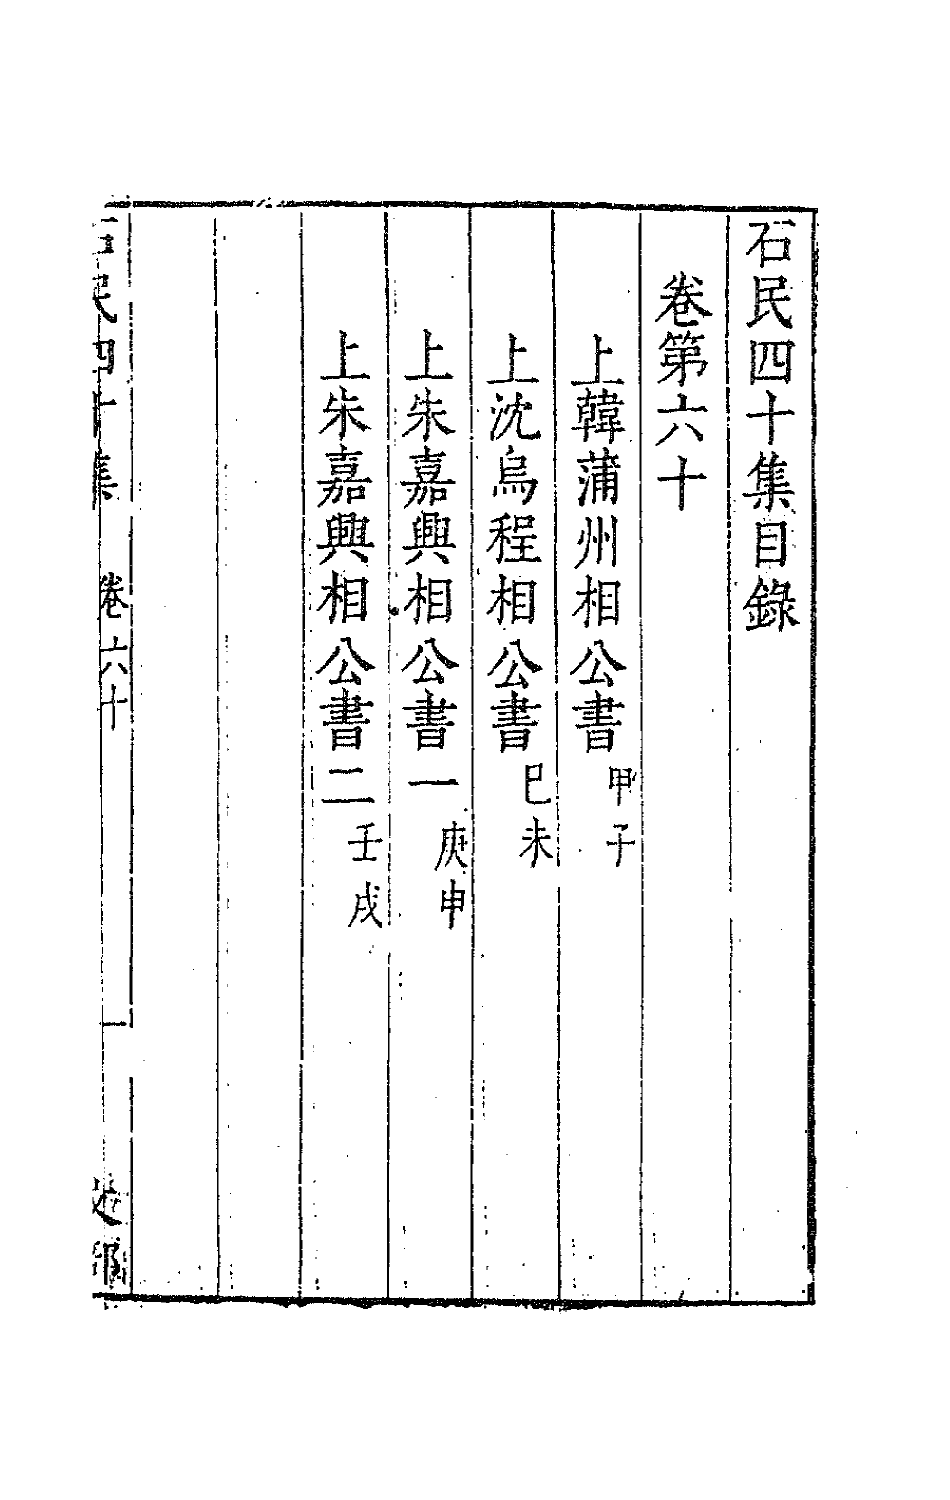 石民四十集目錄
卷第六十
上韓蒲州相公書甲子
上沈烏程相公書巳未
上朱嘉興相公書一庚申
上朱嘉興相公書二壬戌
石民四十集 卷六十 一